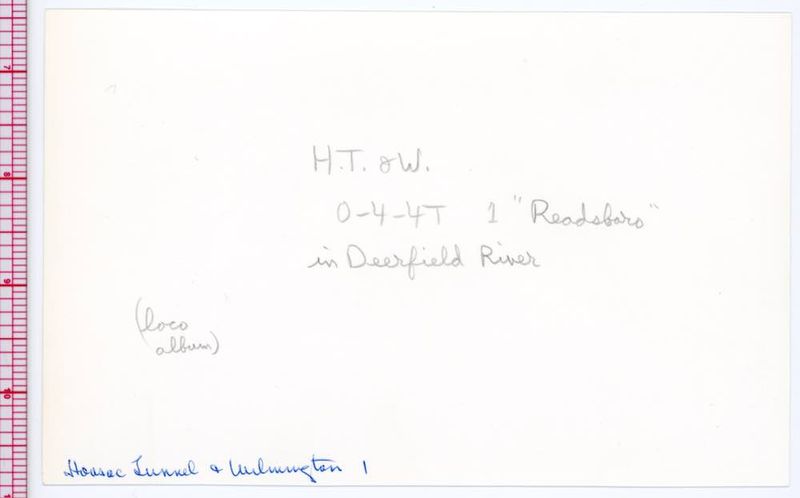 H.T. & W.
0-4-4T 1 "Readsboro"
in Deerfield River
(loco
album)
Hoosac Tunnel & Wilmington 1
7
8
9
10